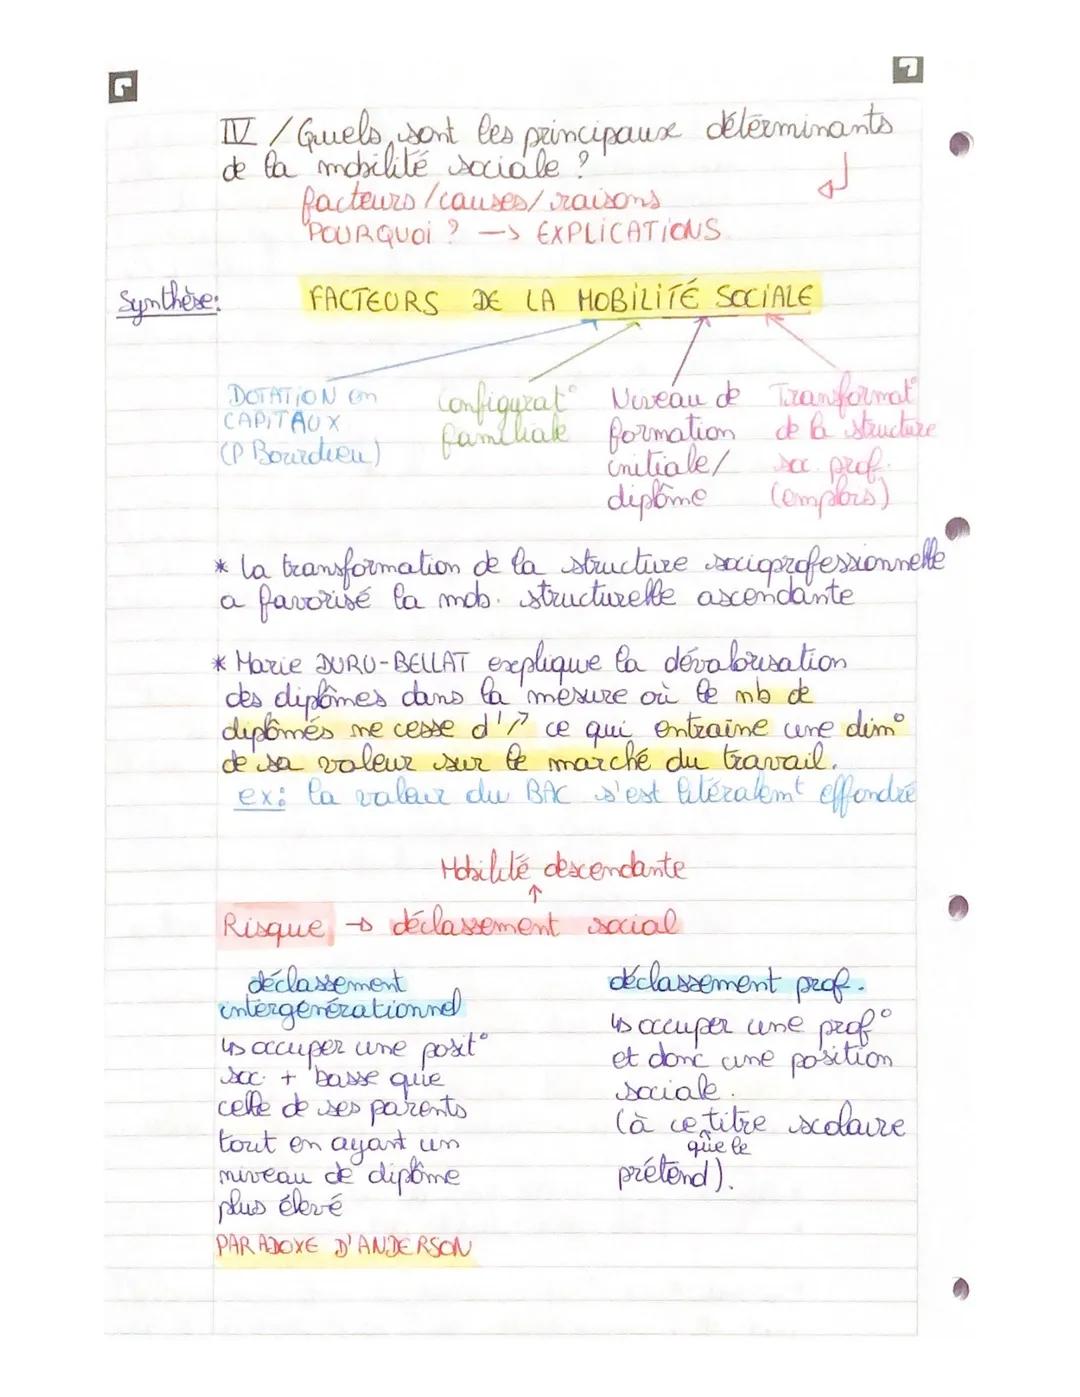 IV / Quels sont les principaux déterminants
de la mobilité sociale ?
facteurs / causes / raisons
POURQUOI ? → EXPLICATIONS
Synthèse: FACTEURS DE LA MOBILITÉ SOCIALE
DOTATION en
CAPITAUX
(P Bourdieu)
Configurat°
familiale
Niveau de
formation
initiale/
diplôme
Transformat°
de la structure
soc. prof.
(emplois)
* la transformation de la structure socioprofessionnelle
a favorisé la mob. structurelle ascendante
* Marie DURU-BELLAT explique la dévalorisation
des diplômes dans la mesure où le nb de
diplômés ne cesse d'↗ ce qui entraine une dim°
de sa valeur sur le marché du travail.
ex: la valeur du BAC s'est litéralemt effondré
Mobilité descendante
↑
Risque → déclassement social
déclassement
intergénérationnel
↳ occuper une posit°
soc. + basse que
celle de ses parents
tout en ayant un
niveau de diplôme
plus élevé
PARADOXE D'ANDERSON
déclassement prof.
↳ occuper une prof°
et donc une position
sociale.
(à ce titre scolaire
que le
prétend).